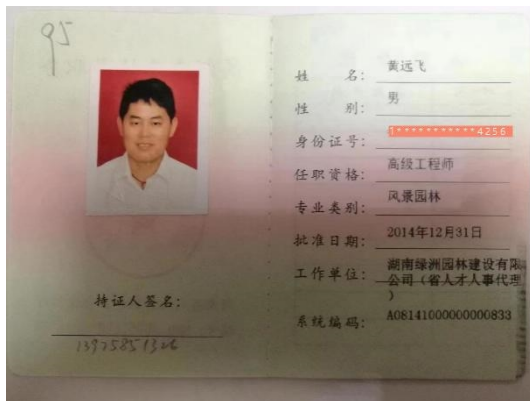 95
姓名：黄远飞
性别：男
身份证号：1***********4256
任职资格：高级工程师
专业类别：风景园林
批准日期：2014年12月31日
工作单位：湖南绿洲园林建设有限
公司（省人才人事代理
）
系统编码：A08141000000000833
持证人签名：